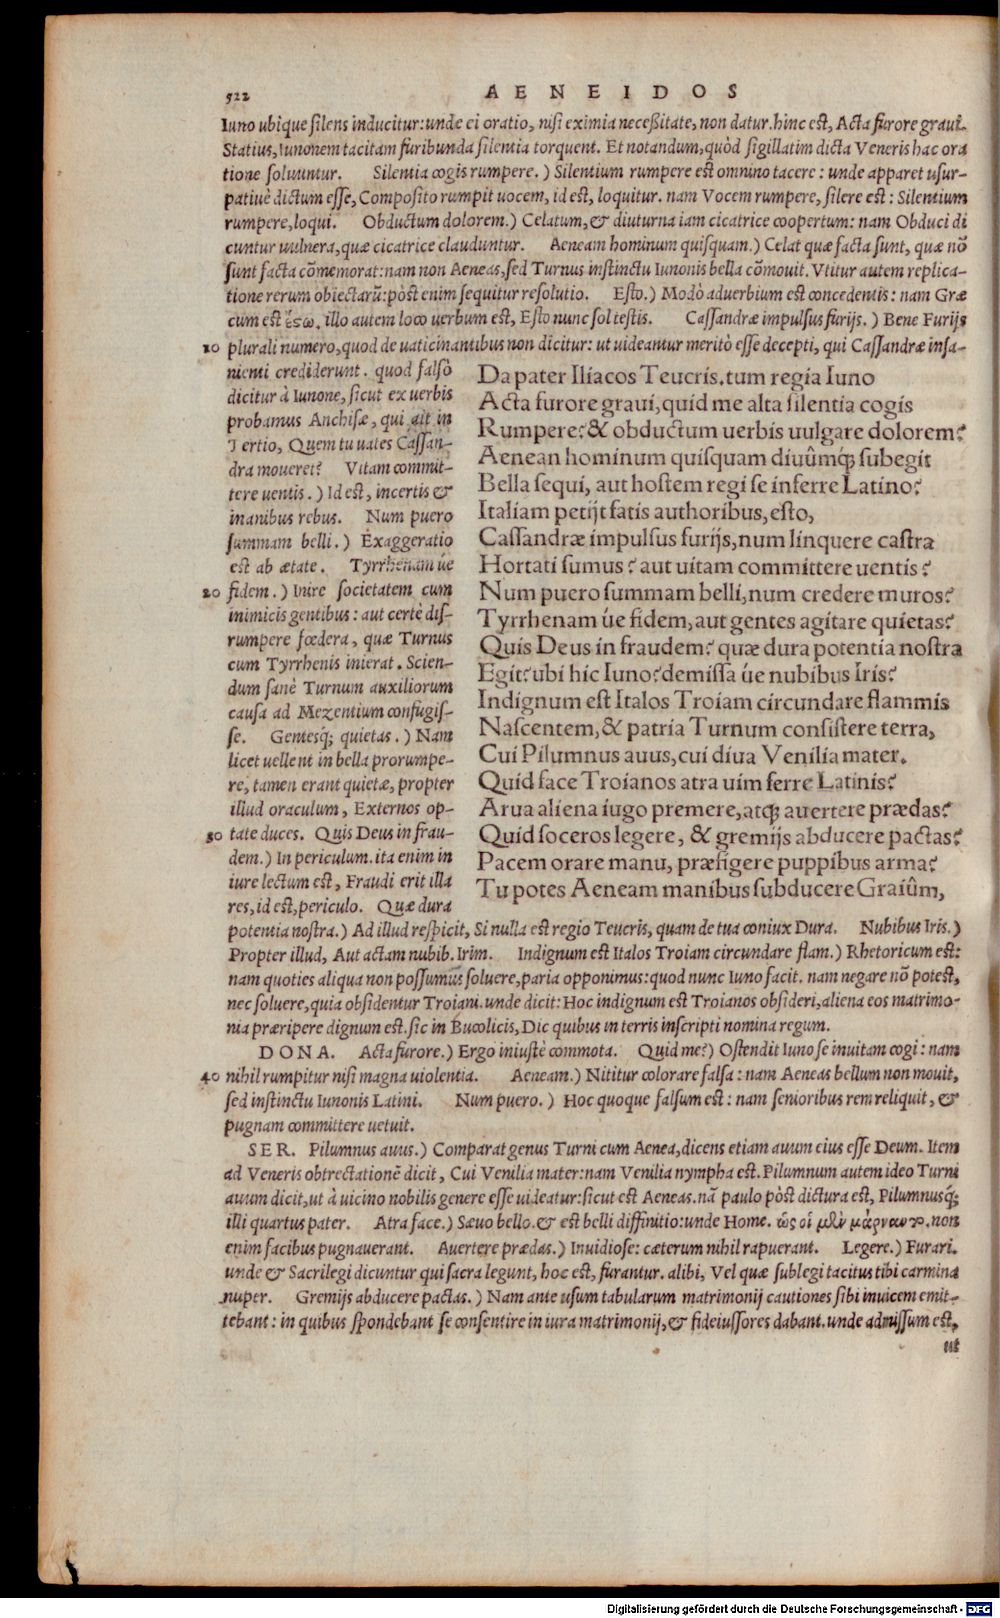 522 AENEIDOS
Iuno ubique silens inducitur: unde ei oratio, nisi eximia neceßitate, non datur. hinc est, Acta furore graui.
Statius, Iunonem tacitam furibunda silentia torquent. Et notandum, quòd sigillatim dicta Veneris hac ora
tione soluuntur. Silentia cogis rumpere.) Silentium rumpere est omnino tacere: unde apparet usur-
patiuè dictum esse, Composito rumpit uocem, id est, loquitur. nam Vocem rumpere, silere est: Silentium
rumpere, loqui. Obductum dolorem.) Celatum, & diuturna iam cicatrice coopertum: nam Obduci di
cuntur uulnera, quæ cicatrice clauduntur. Aeneam hominum quisquam.) Celat quæ facta sunt, quæ nõ
sunt facta cõmemorat: nam non Aeneas, sed Turnus instinctu Iunonis bella cõmouit. Vtitur autem replica-
tione rerum obiectarũ: pòst enim sequitur resolutio. Esto.) Modò aduerbium est concedentis: nam Græ
cum est ἔστω. illo autem loco uerbum est, Esto nunc sol testis. Cassandræ impulsus furijs.) Bene Furijs
10 plurali numero, quod de uaticinantibus non dicitur: ut uideantur meritò esse decepti, qui Cassandræ insa-
nienti crediderunt. quod falsò
dicitur à Iunone, sicut ex uerbis
probamus Anchisæ, qui ait in
Tertio, Quem tu uates Cassan-
dra moueret? Vitam commit-
tere uentis.) Id est, incertis &
inanibus rebus. Num puero
summam belli.) Exaggeratio
est ab ætate. Tyrrhenam úe
20 fidem.) Inire societatem cum
inimicis gentibus: aut certè dis-
rumpere fœdera, quæ Turnus
cum Tyrrhenis inierat. Scien-
dum sanè Turnum auxiliorum
causa ad Mezentium confugis-
se. Gentesq́; quietas.) Nam
licet uellent in bella prorumpe-
re, tamen erant quietæ, propter
illud oraculum, Externos op-
30 tate duces. Quis Deus in frau-
dem.) In periculum. ita enim in
iure lectum est, Fraudi erit illa
res, id est, periculo. Quæ dura
Da pater Ilíacos Teucris. tum regia Iuno
Acta furore graui, quid me alta silentia cogis
Rumpere? & obductum uerbis uulgare dolorem?
Aenean hominum quisquam diuûmq́; subegit
Bella sequi, aut hostem regi se inferre Latino?
Italiam petijt fatis authoribus, esto,
Cassandræ impulsus furijs, num linquere castra
Hortati sumus? aut uitam committere uentis?
Num puero summam belli, num credere muros?
Tyrrhenam úe fidem, aut gentes agitare quietas?
Quis Deus in fraudem? quæ dura potentia nostra
Egit? ubi hic Iuno? demissa úe nubibus Iris?
Indignum est Italos Troiam circundare flammis
Nascentem, & patria Turnum consistere terra,
Cui Pilumnus auus, cui diua Venilia mater.
Quid face Troianos atra uim ferre Latinis?
Arua aliena iugo premere, atq; auertere prædas?
Quid soceros legere, & gremijs abducere pactas?
Pacem orare manu, præfigere puppibus arma?
Tu potes Aeneam manibus subducere Graiûm,
potentia nostra.) Ad illud respicit, Si nulla est regio Teucris, quam de tua coniux Dura. Nubibus Iris.)
Propter illud, Aut actam nubib. Irim. Indignum est Italos Troiam circundare flam.) Rhetoricum est:
nam quoties aliqua non possumus soluere, paria opponimus: quod nunc Iuno facit. nam negare nõ potest,
nec soluere, quia obsidentur Troiani. unde dicit: Hoc indignum est Troianos obsideri, aliena eos matrimo-
nia præripere dignum est. sic in Bucolicis, Dic quibus in terris inscripti nomina regum.
DONA. Acta furore.) Ergo iniustè commota. Quid me?) Ostendit Iuno se inuitam cogi: nam
40 nihil rumpitur nisi magna uiolentia. Aeneam.) Nititur colorare falsa: nam Aeneas bellum non mouit,
sed instinctu Iunonis Latini. Num puero.) Hoc quoque falsum est: nam senioribus rem reliquit, &
pugnam committere uetuit.
SER. Pilumnus auus.) Comparat genus Turni cum Aenea, dicens etiam auum eius esse Deum. Item
ad Veneris obtrectationẽ dicit, Cui Venilia mater: nam Venilia nympha est. Pilumnum autem ideo Turni
auum dicit, ut à uicino nobilis genere esse uideatur: sicut est Aeneas. nã paulo pòst dictura est, Pilumnusq́;
illi quartus pater. Atra face.) Sæuo bello. & est belli diffinitio: unde Home. ὣς οἱ μὲν μάρναντο. non
enim facibus pugnauerant. Auertere prædas.) Inuidiose: cæterum nihil rapuerant. Legere.) Furari.
unde & Sacrilegi dicuntur qui sacra legunt, hoc est, furantur. alibi, Vel quæ sublegi tacitus tibi carmina
nuper. Gremijs abducere pactas.) Nam ante usum tabularum matrimonij cautiones sibi inuicem emit-
tebant: in quibus spondebant se consentire in iura matrimonij, & fideiussores dabant. unde admissum est,
ut
Digitalisierung gefördert durch die Deutsche Forschungsgemeinschaft - DFG